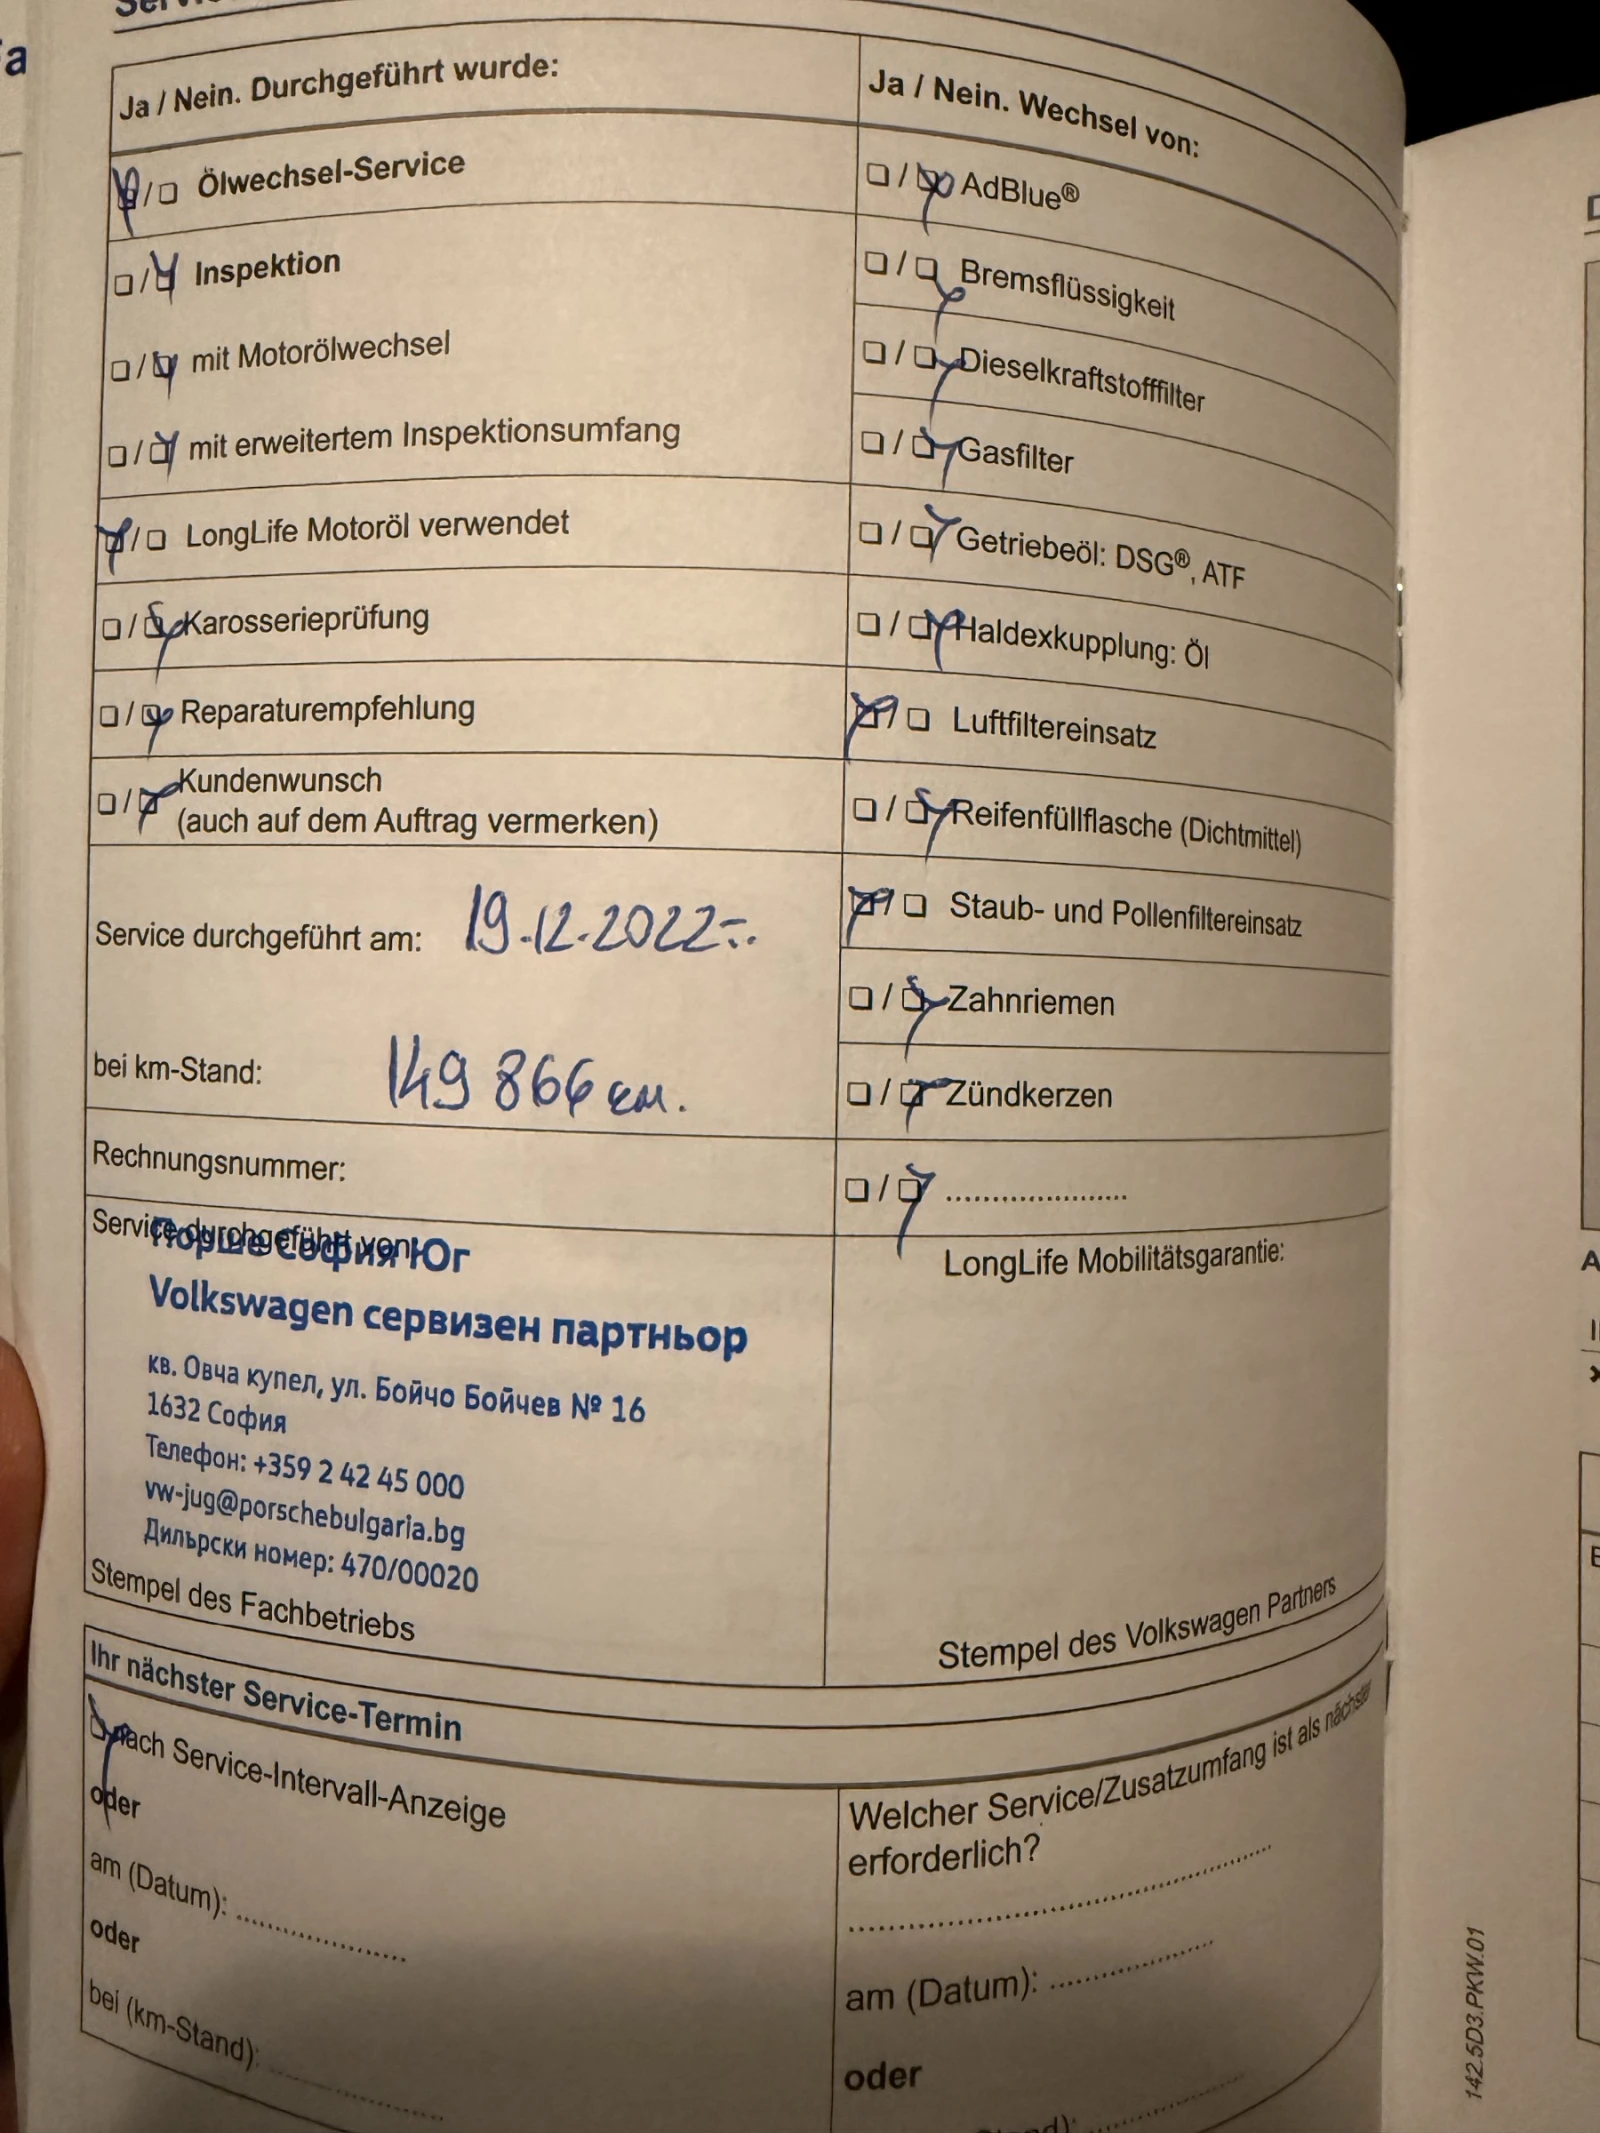 Ja / Nein. Durchgeführt wurde:
☑/☐ Ölwechsel-Service
☐/☑ Inspektion
☐/☑ mit Motorölwechsel
☐/☑ mit erweitertem Inspektionsumfang
☑/☐ LongLife Motoröl verwendet
☐/☑ Karosserieprüfung
☐/☑ Reparaturempfehlung
☐/☑ Kundenwunsch
(auch auf dem Auftrag vermerken)
Service durchgeführt am: 19.12.2022
bei km-Stand: 149 866 км.
Rechnungsnummer:
Service durchgeführt von:
Порше София Юг
Volkswagen сервизен партньор
кв. Овча купел, ул. Бойчо Бойчев № 16
1632 София
Телефон: +359 2 42 45 000
vw-jug@porschebulgaria.bg
Дилърски номер: 470/00020
Stempel des Fachbetriebs
Ja / Nein. Wechsel von:
☐/☑ AdBlue®
☐/☑ Bremsflüssigkeit
☐/☑ Dieselkraftstofffilter
☐/☑ Gasfilter
☐/☑ Getriebeöl: DSG®, ATF
☐/☑ Haldexkupplung: Öl
☑/☐ Luftfiltereinsatz
☐/☑ Reifenfüllflasche (Dichtmittel)
☑/☐ Staub- und Pollenfiltereinsatz
☐/☑ Zahnriemen
☐/☑ Zündkerzen
☐/☑ ......................
LongLife Mobilitätsgarantie:
Stempel des Volkswagen Partners
Ihr nächster Service-Termin
☑ nach Service-Intervall-Anzeige
oder
am (Datum): ......................
oder
bei (km-Stand): ......................
Welcher Service/Zusatzumfang ist als nächster
erforderlich?
......................
am (Datum): ......................
oder
142.5D3.PKW.01